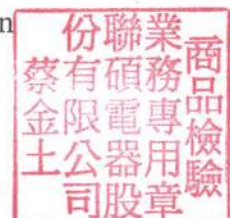 n
商品檢驗
業務專用章
聯碩電器股
份有限公司
蔡金土